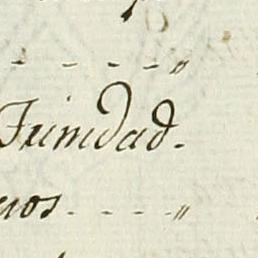 - - - - - "
Trinidad.
uos. - - - - "